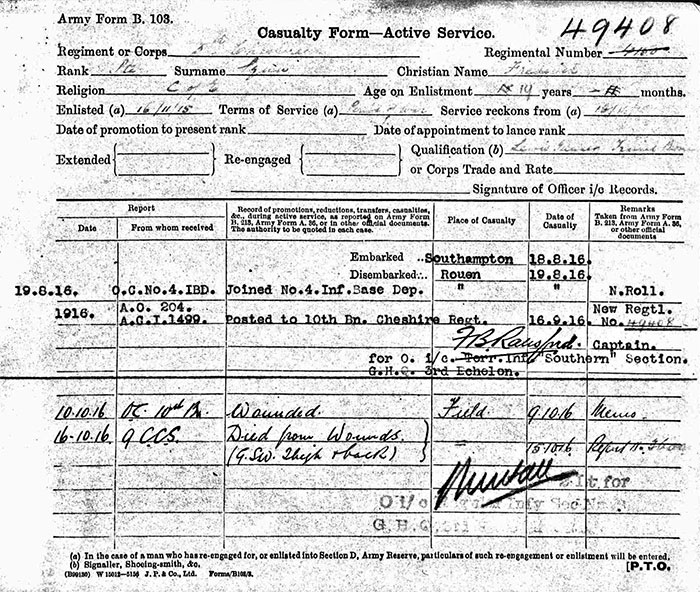 Army Form B. 103.
49408
Casualty Form—Active Service.
Regiment or Corps Regimental Number
Rank Pte Surname Christian Name
Religion C of E Age on Enlistment 19 years months.
Enlisted (a) 16/11/15 Terms of Service (a) Service reckons from (a)
Date of promotion to present rank Date of appointment to lance rank
Extended Re-engaged Qualification (b)
or Corps Trade and Rate
Signature of Officer i/c Records.
Report
Date From whom received
Record of promotions, reductions, transfers, casualties,
&c., during active service, as reported on Army Form
B. 213, Army Form A. 36, or in other official documents.
The authority to be quoted in each case.
Place of Casualty
Date of
Casualty
Remarks
Taken from Army Form
B. 213, Army Form A. 36,
or other official
documents
Embarked Southampton 18.8.16.
Disembarked... Rouen 19.8.16.
19.8.16. O.C.No.4.IBD. Joined No.4.Inf.Base Dep. " " N.Roll.
1916. A.O. 204. New Regtl.
A.C.I.1499. Posted to 10th Bn. Cheshire Regt. 16.9.16. No. 49408
Captain.
for O. i/c. Terr.Inf "Southern" Section.
G.H.Q. 3rd Echelon.
10.10.16 OC. 10th Bn Wounded. Field. 9.10.16
16-10.16. 9 CCS. Died from Wounds. — 15.10.16
(G.S.W. Thigh & back)
Lt for
O i/c
G.H.Q.
(a) In the case of a man who has re-engaged for, or enlisted into Section D, Army Reserve, particulars of such re-engagement or enlistment will be entered.
(b) Signaller, Shoeing-smith, &c.
J. P. & Co., Ltd. Forms/B103/3.
[P.T.O.